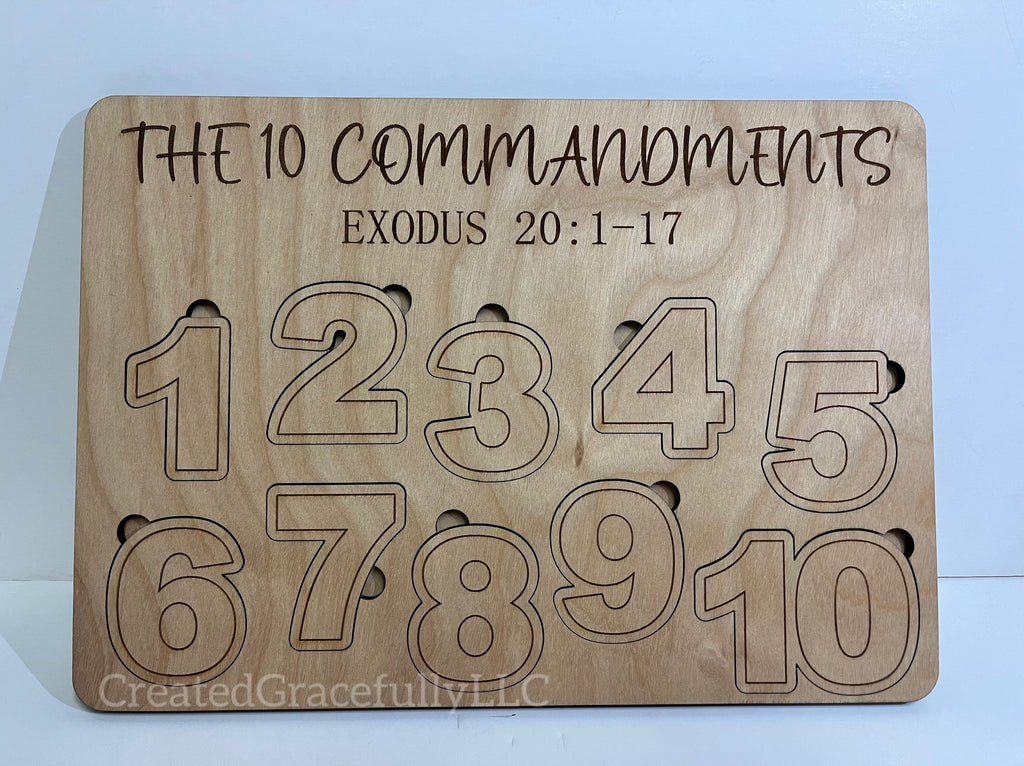 THE 10 COMMANDMENTS
EXODUS 20:1-17
1 2 3 4 5
6 7 8 9 10
CreatedGracefullyLLC